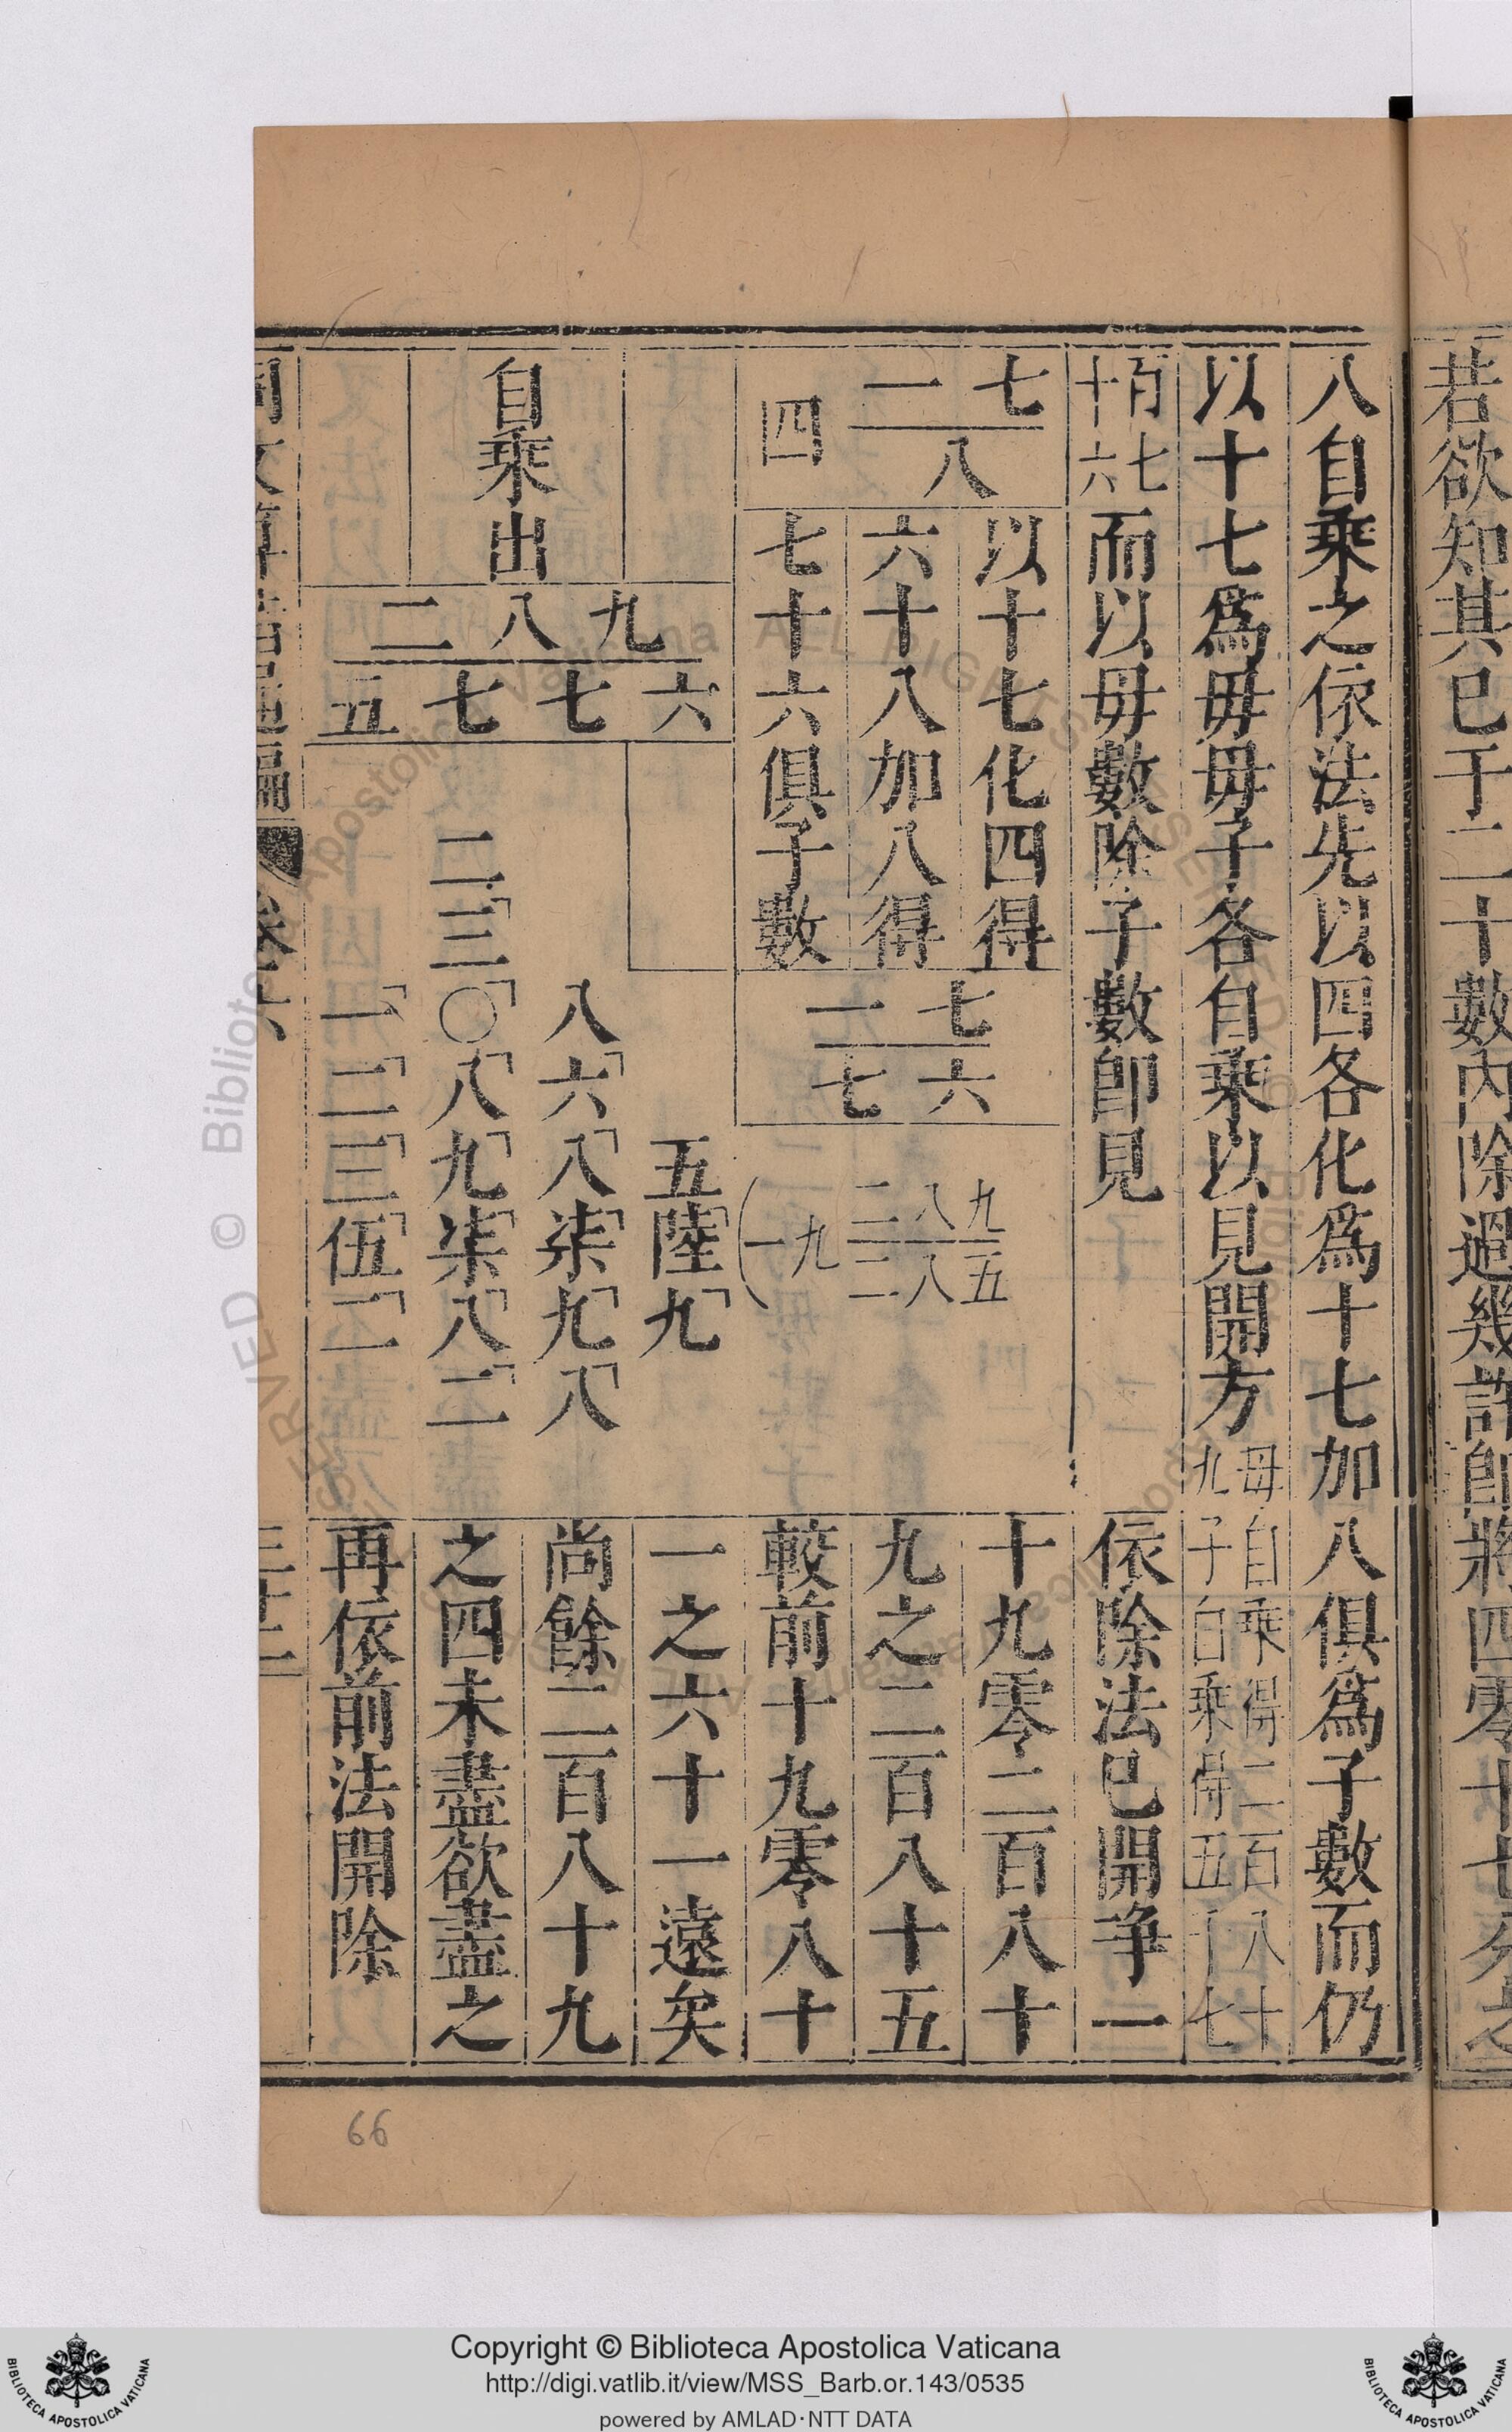 若欲知其已于二十數內除過幾許卽將四零十七分之
八自乘之依法先以四各化爲十七加八俱爲子數而仍
以十七爲毋毋子各自乘以見開方毋自乘得二百八十
九子自乘得五千七
百七
十六而以毋數除子數卽見
七
一
八
四
以十七化四得
六十八加八得
七十六俱子數
七
一
六
七
九
八
二
五
八
二
九
一
依除法已開爭一
十九零二百八十
九之二百八十五
較前十九零八十
一之六十一遠矣
尚餘二百八十九
之四未盡欲盡之
再依前法開除
自乘出
九
八
二
六
七
七
五
五陸九
八六八柒九八
二三〇八九柒八二
一二三伍二
同文算指通編 卷六 三十二
66
Copyright © Biblioteca Apostolica Vaticana
http://digi.vatlib.it/view/MSS_Barb.or.143/0535
powered by AMLAD·NTT DATA
BIBLIOTECA APOSTOLICA VATICANA
BIBLIOTECA APOSTOLICA VATICANA